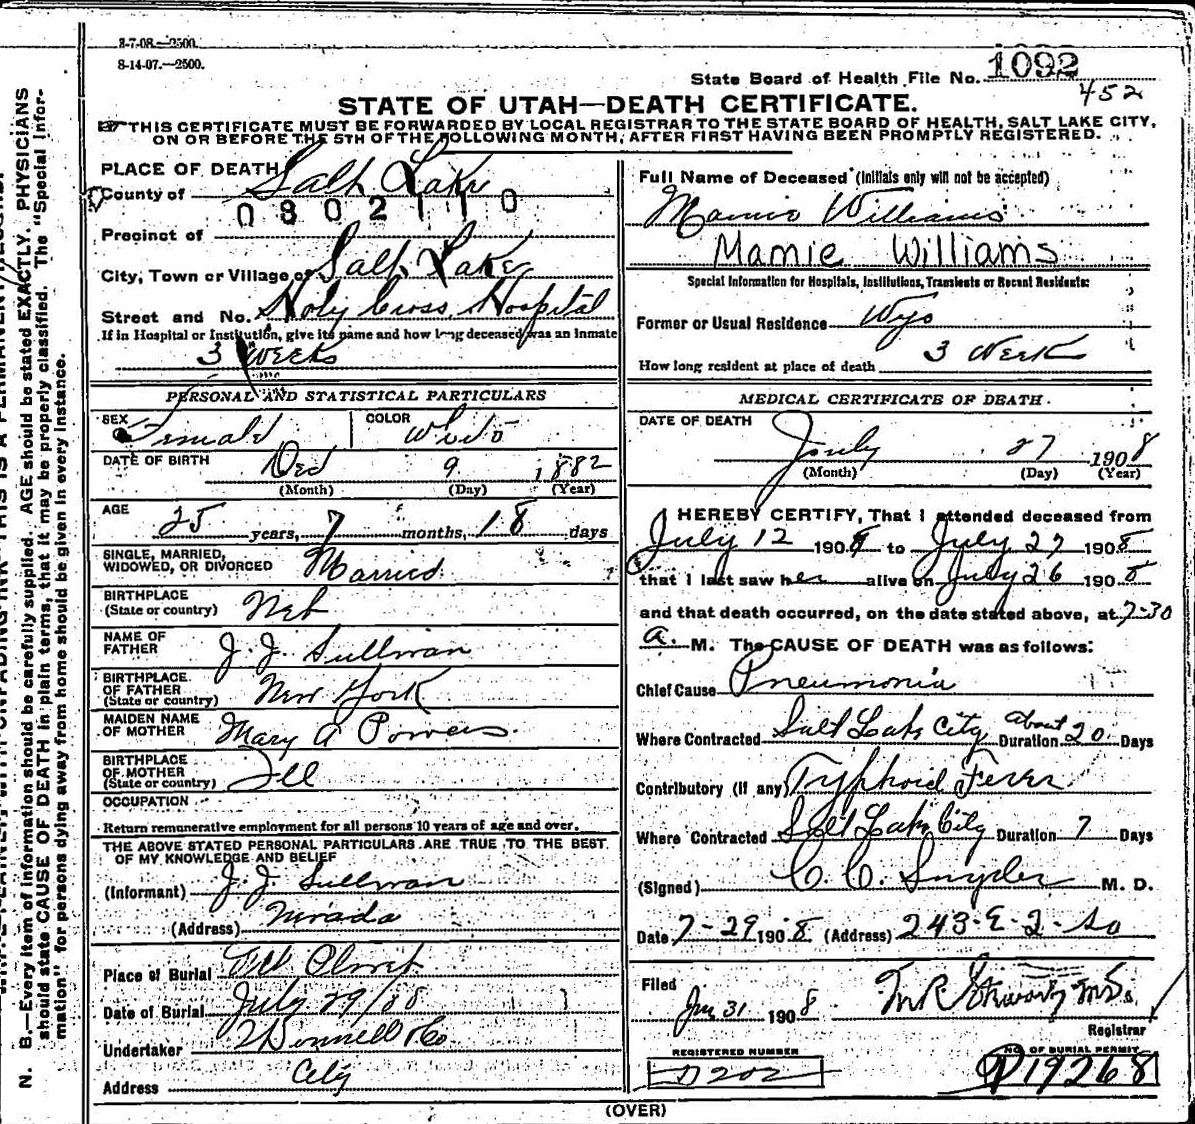 3-7-08.—2500.
8-14-07.—2500.
State Board of Health File No. 1092
452
STATE OF UTAH—DEATH CERTIFICATE.
THIS CERTIFICATE MUST BE FORWARDED BY LOCAL REGISTRAR TO THE STATE BOARD OF HEALTH, SALT LAKE CITY,
ON OR BEFORE THE 5TH OF THE FOLLOWING MONTH, AFTER FIRST HAVING BEEN PROMPTLY REGISTERED.
PLACE OF DEATH
County of Salt Lake
0802110
Precinct of
City, Town or Village of Salt Lake
Street and No. Holy Cross Hospital
If in Hospital or Institution, give its name and how long deceased was an inmate
3 Weeks
PERSONAL AND STATISTICAL PARTICULARS
SEX Female COLOR White
DATE OF BIRTH Dec 9 1882
(Month) (Day) (Year)
AGE 25 years, 7 months, 18 days
SINGLE, MARRIED,
WIDOWED, OR DIVORCED Married
BIRTHPLACE
(State or country) Neb
NAME OF
FATHER J. J. Sullivan
BIRTHPLACE
OF FATHER
(State or country) New York
MAIDEN NAME
OF MOTHER Mary A Powers
BIRTHPLACE
OF MOTHER
(State or country) Ill
OCCUPATION
Return remunerative employment for all persons 10 years of age and over.
THE ABOVE STATED PERSONAL PARTICULARS ARE TRUE TO THE BEST
OF MY KNOWLEDGE AND BELIEF
(Informant) J. J. Sullivan
(Address) Nevada
Place of Burial Mt Olivet
Date of Burial July 29/08
Undertaker O'Donnell & Co
Address City
Full Name of Deceased (Initials only will not be accepted)
Mamie Williams
Mamie Williams
Special Information for Hospitals, Institutions, Transients or Recent Residents:
Former or Usual Residence Wyo
How long resident at place of death 3 Week
MEDICAL CERTIFICATE OF DEATH.
DATE OF DEATH
July 27 1908
(Month) (Day) (Year)
I HEREBY CERTIFY, That I attended deceased from
July 12 1908 to July 27 1908
that I last saw her alive on July 26 1908
and that death occurred, on the date stated above, at 7-30
a. M. The CAUSE OF DEATH was as follows:
Chief Cause Pneumonia
Where Contracted Salt Lake City Duration About 20 Days
Contributory (if any) Typhoid Fever
Where Contracted Salt Lake City Duration 7 Days
(Signed) C. C. Snyder M. D.
Date 7-29 1908 (Address) 243-E-2-So
Filed
31 1908
Registrar
REGISTERED NUMBER
D202
NO. OF BURIAL PERMIT
19268
(OVER)
N. B.—Every item of information should be carefully supplied. AGE should be stated EXACTLY. PHYSICIANS
should state CAUSE OF DEATH in plain terms, that it may be properly classified. The "Special Infor-
mation" for persons dying away from home should be given in every instance.